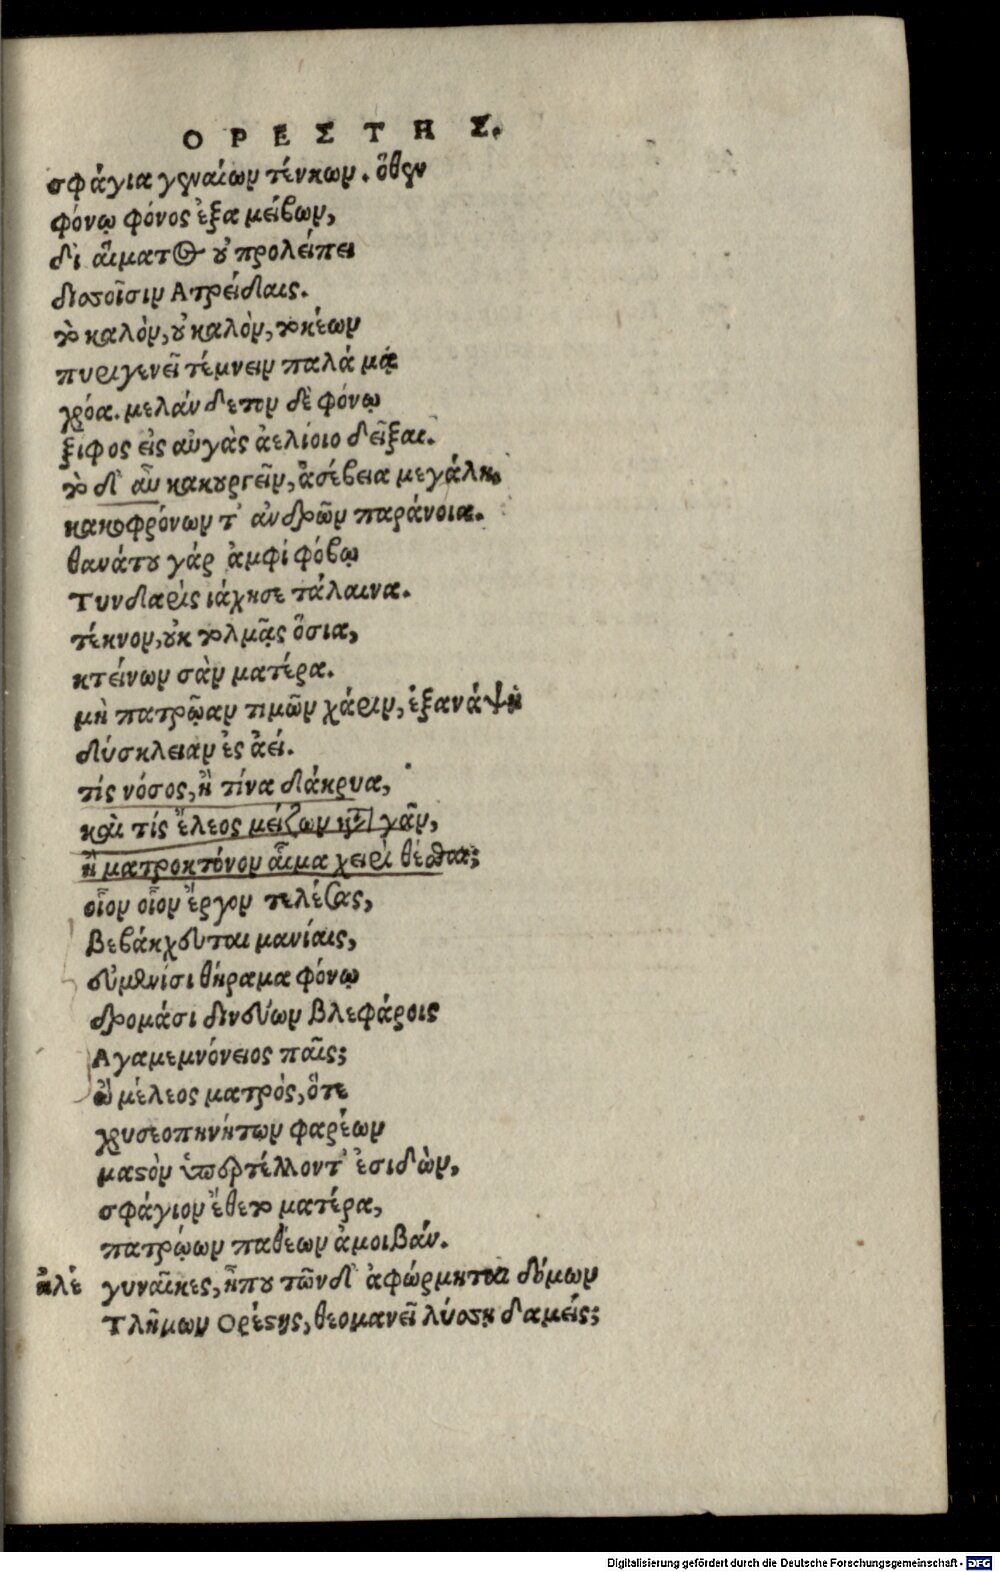 ΟΡΕΣΤΗΣ.
σφάγια γενναίων τέκνων. ὅθεν
φόνῳ φόνος ἐξα μείβων,
δι αἵματος οὐ προλείπει
διοσοῖσιν Ατρείδαις.
τὸ καλὸν, οὐ καλὸν, τοκέων
πυριγενεῖ τέμνειν παλά μᾳ
χρόα. μελάν δετον δὲ φόνῳ
ξιφος εἰς αὐγὰς ἀελίοιο δεῖξαι.
τὸ δ' αὖ κακουργεῖν, ἀσέβεια μεγάλη,
κακοφρόνων τ' ἀνδρῶν παράνοια.
θανάτου γάρ ἀμφὶ φόβῳ
Τυνδαρὶς ἰάχησε τάλαινα.
τέκνον, οὐκ τολμᾷς ὅσια,
κτείνων σὰν ματέρα.
μὴ πατρῴαν τιμῶν χάριν, ἐξανάψῃ
δύσκλειαν ἐς ἀεί.
τίς νόσος, ἢ τίνα δάκρυα,
καὶ τίς ἔλεος μείζων κατὰ γᾶν,
ἢ ματροκτόνον αἷμα χειρὶ θέσθαι;
οἷον οἷον ἔργον τελέσας,
Βεβάκχευται μανίαις,
εὐμενίσι θήραμα φόνῳ
δρομάσι δινεύων βλεφάροις
Αγαμεμνόνειος παῖς;
ὦ μέλεος ματρὸς, ὅτε
χρυσεοπηνήτων φαρέων
μαστὸν ὑπερτέλλοντ' ἐσιδὼν,
σφάγιον ἔθετο ματέρα,
πατρῴων παθέων ἀμοιβάν.
ἠλέ γυναῖκες, ἦπου τῶνδ' ἀφώρμηται δόμων
Τλήμων Ορέστης, θεομανεῖ λύσσῃ δαμείς;
Digitalisierung gefördert durch die Deutsche Forschungsgemeinschaft - DFG